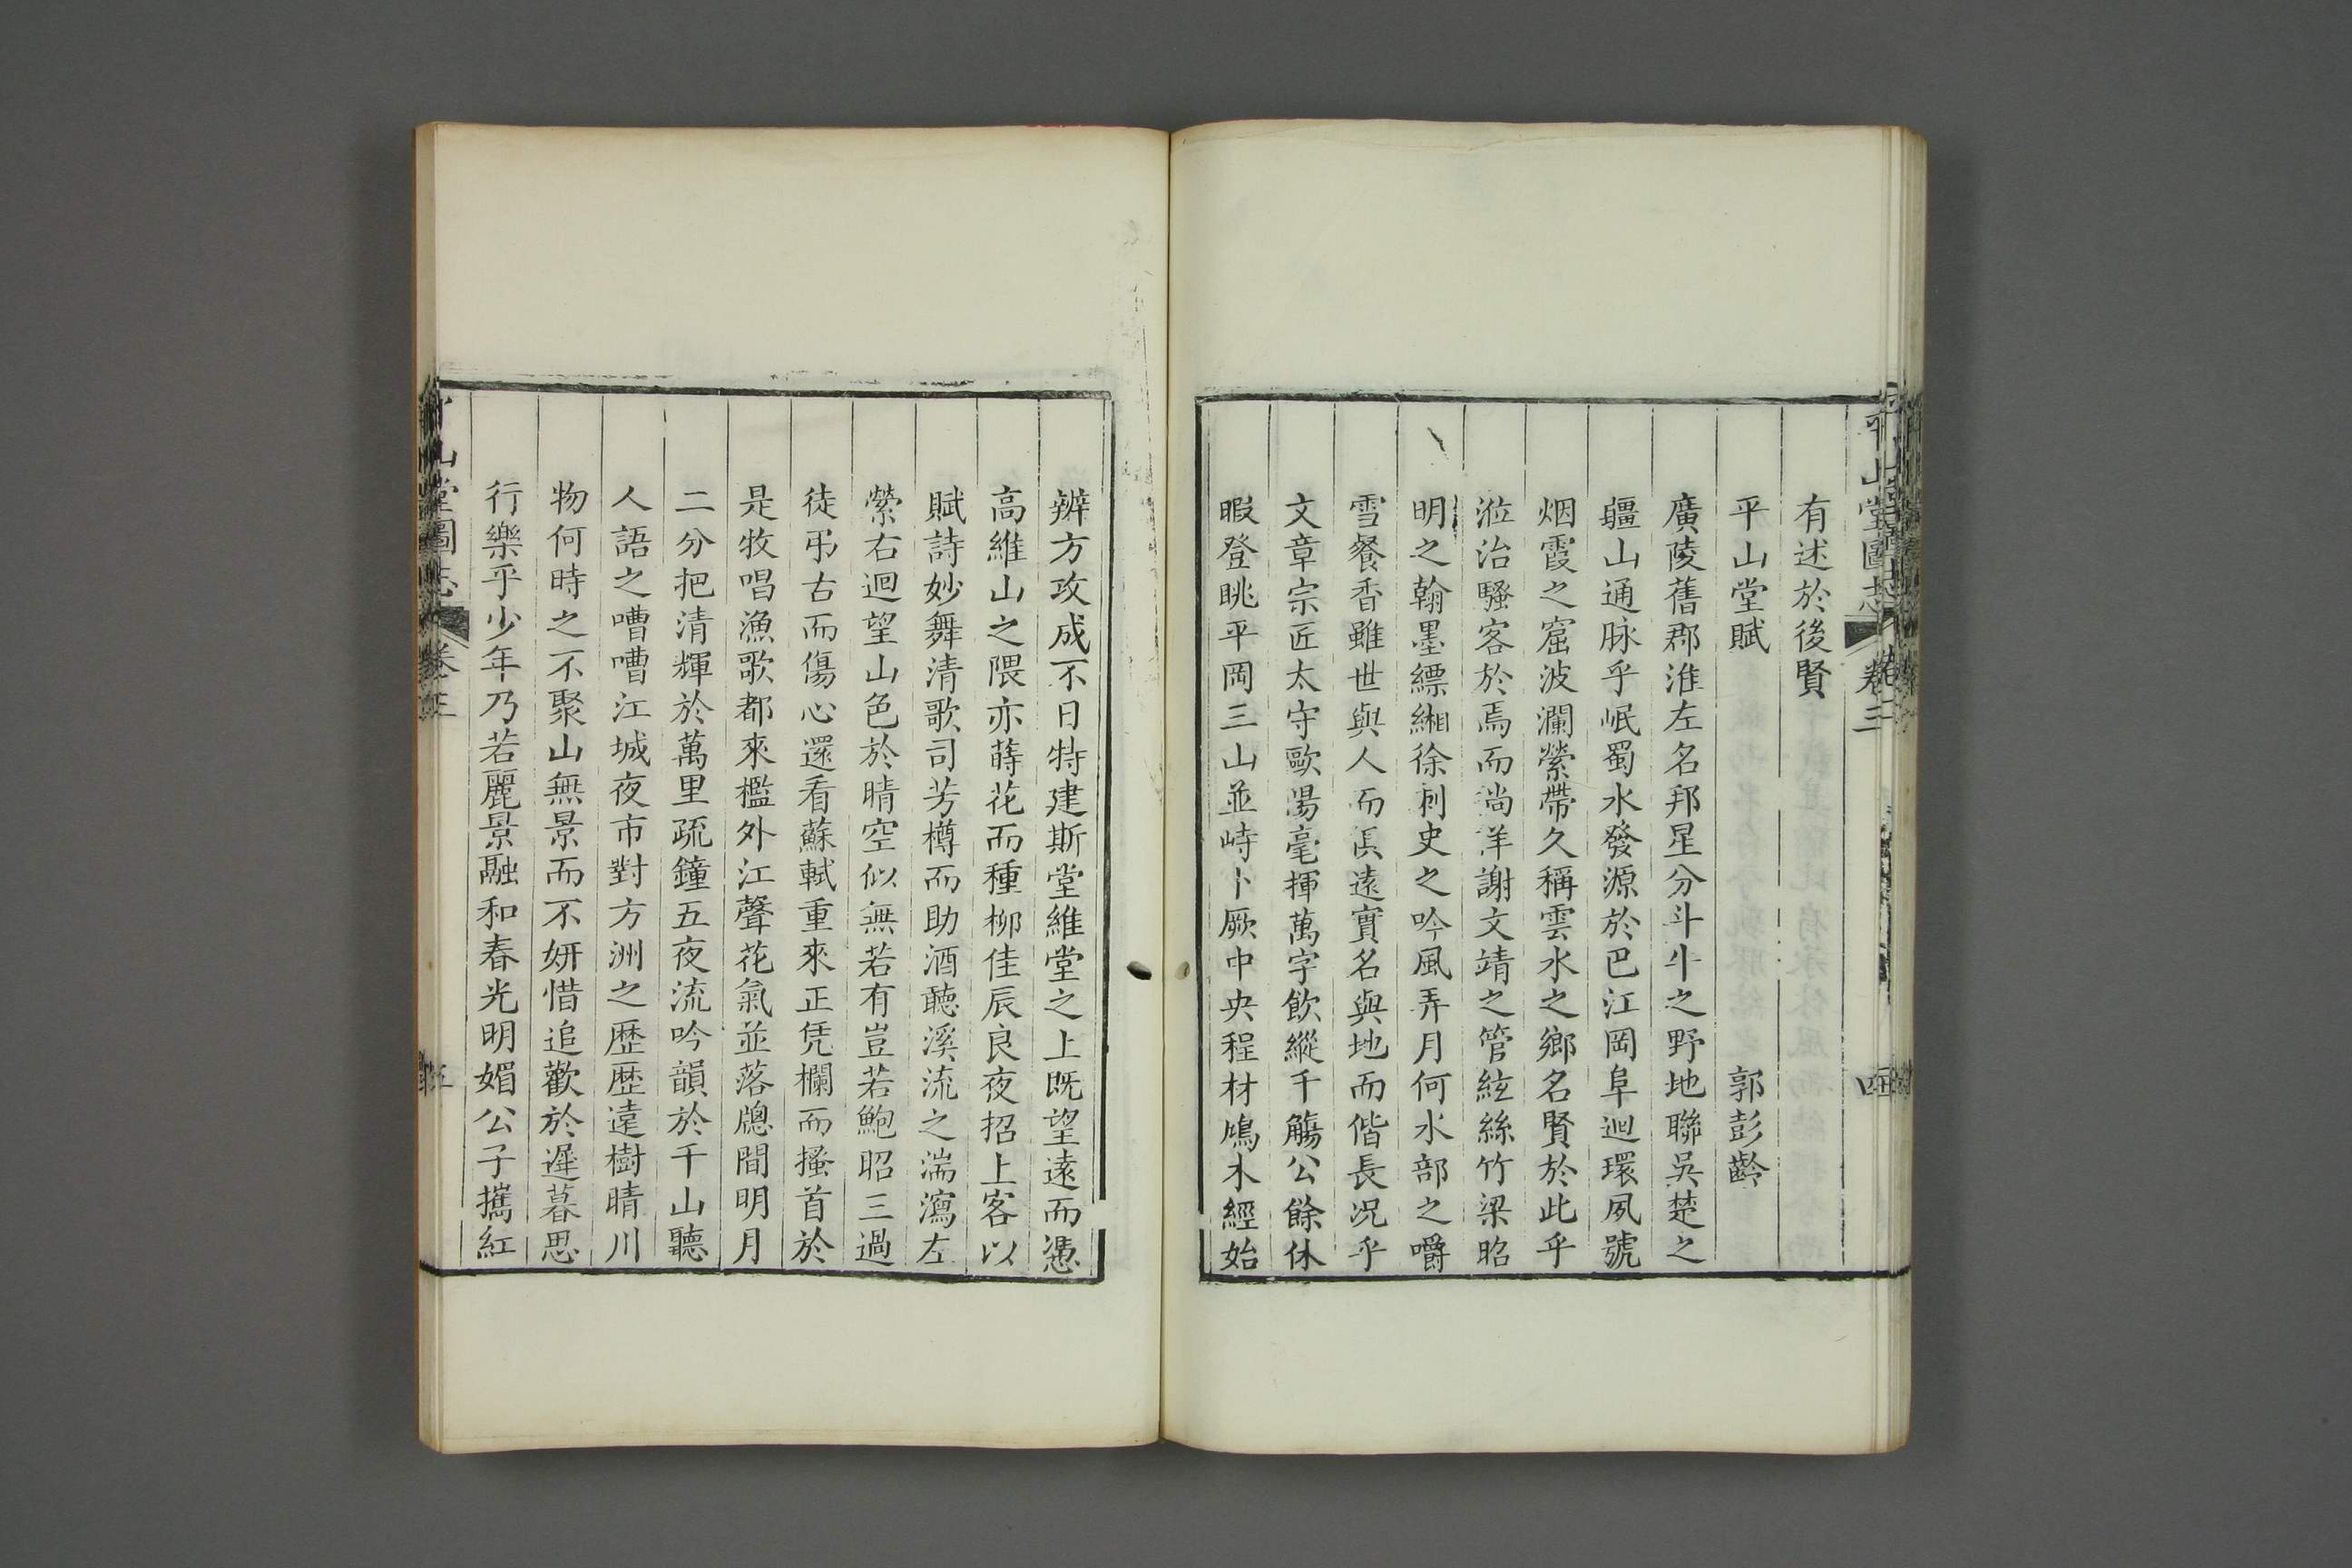 平山堂圖志 卷三 四
有述於後賢
平山堂賦 郭彭齡
廣陵舊郡淮左名邦星分斗牛之野地聯吳楚之
疆山通脉乎岷蜀水發源於巴江岡阜迴環夙號
烟霞之窟波瀾縈帶久稱雲水之鄉名賢於此乎
涖治騷客於焉而尚羊謝文靖之管絃絲竹梁昭
明之翰墨縹緗徐刺史之吟風弄月何水部之嚼
雪餐香雖世與人而俱遠實名與地而偕長況乎
文章宗匠太守歐陽毫揮萬字飲縱千觴公餘休
暇登眺平岡三山並峙卜厥中央程材鳩木經始
辨方攻成不日特建斯堂維堂之上既望遠而憑
高維山之隈亦蒔花而種柳佳辰良夜招上客以
賦詩妙舞清歌司芳樽而助酒聽溪流之湍瀉左
縈右迴望山色於晴空似無若有豈若鮑昭三過
徒弔古而傷心還看蘇軾重來正凭欄而搔首於
是牧唱漁歌都來檻外江聲花氣並落牕間明月
二分把清輝於萬里疏鐘五夜流吟韻於千山聽
人語之嘈嘈江城夜市對方洲之歷歷遠樹晴川
物何時之不聚山無景而不妍惜追歡於遲暮思
行樂乎少年乃若麗景融和春光明媚公子攜紅
山堂圖志 卷三